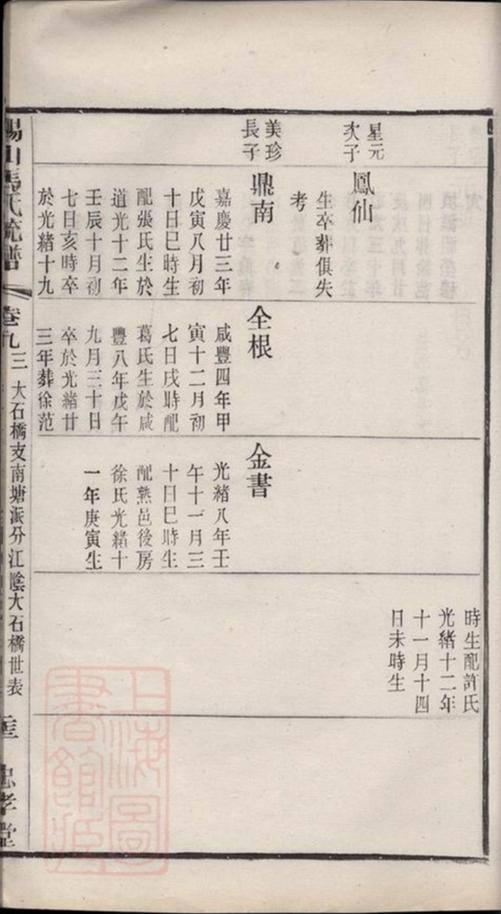 時生配許氏
光緒十二年
十一月十四
日未時生
星元
次子
鳳仙
生卒葬俱失
考
美珍
長子
鼎南
嘉慶廿三年
戊寅八月初
十日巳時生
配張氏生於
道光十二年
壬辰十月初
七日亥時卒
於光緒十九
全根
咸豐四年甲
寅十二月初
七日戌時配
葛氏生於咸
豐八年戊午
九月三十日
卒於光緒廿
三年葬徐范
金書
光緒八年壬
午十一月三
十日巳時生
配熟邑後房
徐氏光緒十
一年庚寅生
錫山馬氏統譜
卷九三
大石橋支南塘派分江陰大石橋世表
忠孝堂
上海圖
書館藏